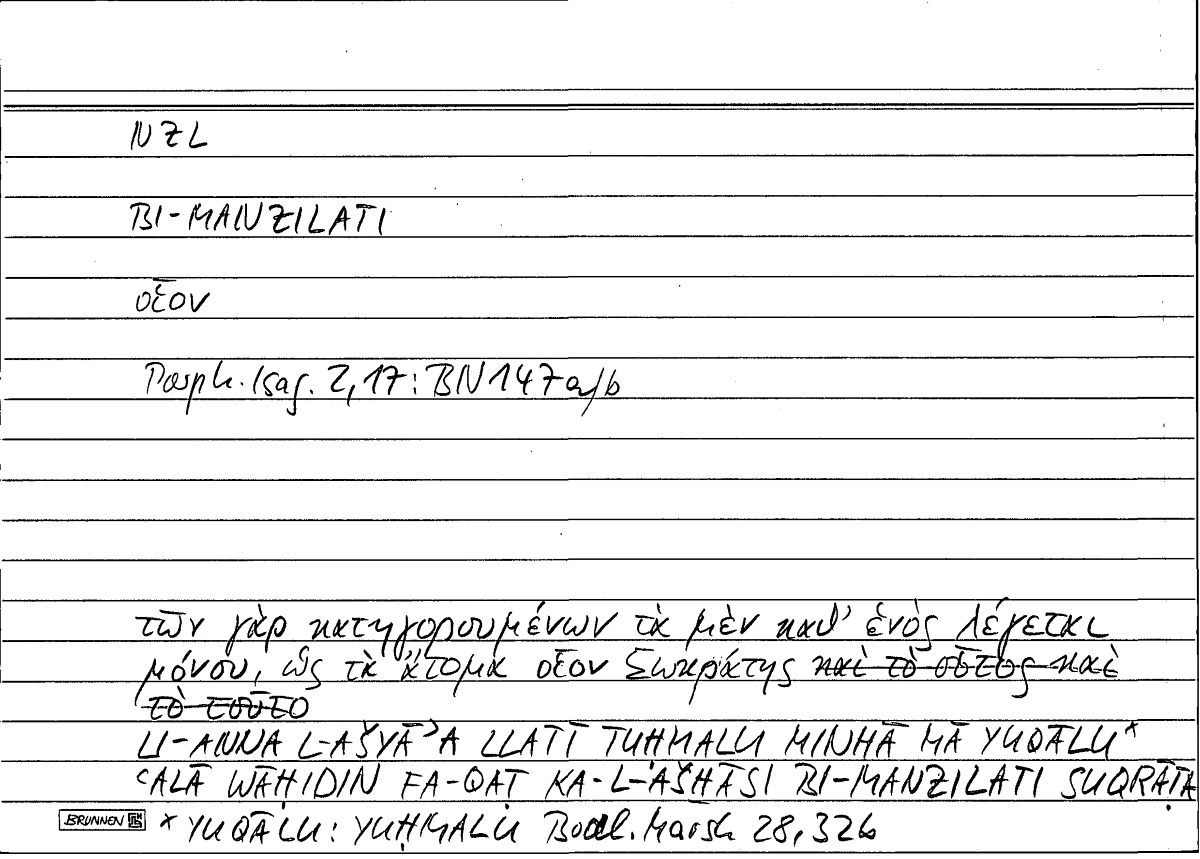 NZL
BI-MANZILATI
οἷον
Porph. Isag. 2,17: BN 147a/b
τῶν γὰρ κατηγορουμένων τὰ μὲν καθ’ ἑνὸς λέγεται
μόνου, ὡς τὰ ἄτομα οἷον Σωκράτης καὶ τὸ οὗτος καὶ
τὸ τοῦτο
LI-ANNA L-AŠYĀʾA LLATĪ TUḤMALU MINHĀ MĀ YUQĀLU*
ʿALĀ WĀḤIDIN FA-QAṬ KA-L-AŠḪĀṢI BI-MANZILATI SUQRĀṬA
BRUNNEN * YUQĀLU: YUḤMALU Bodl. Marsh 28, 32b